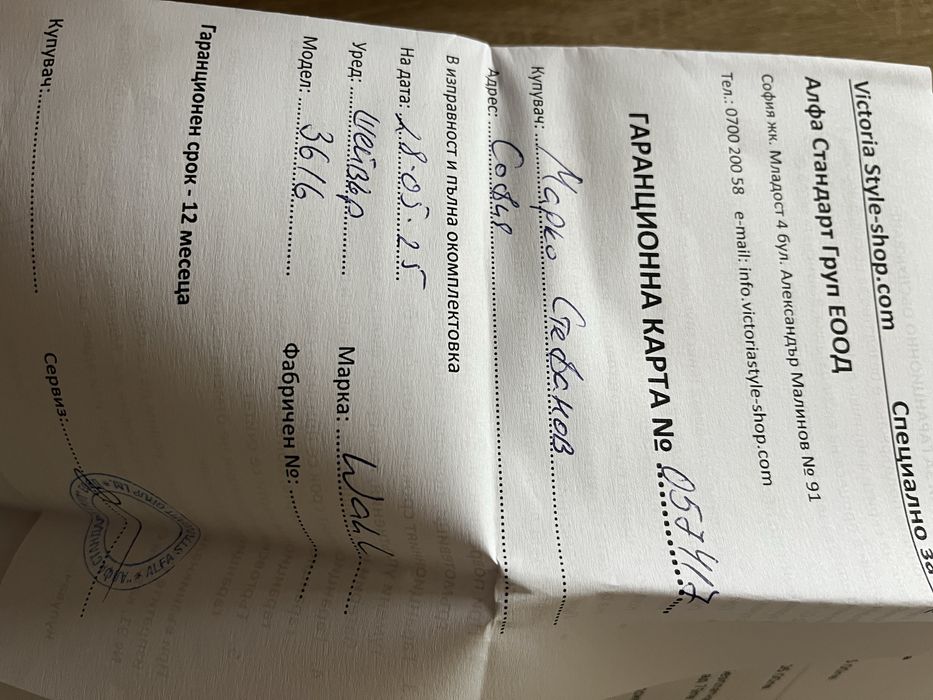 Victoria Style-shop.com Специално за
Алфа Стандарт Груп ЕООД
София жк. Младост 4 бул. Александър Малинов № 91
Тел.: 0700 200 58 e-mail: info.victoriastyle-shop.com
ГАРАНЦИОННА КАРТА № 057417
Купувач: Марко Стефанов
Адрес: София
В изправност и пълна окомплектовка
На дата: 28.05.25
Уред: шейвър Марка: Wahl
Модел: 3616 Фабричен №:
Гаранционен срок - 12 месеца
Купувач: Сервиз:
ALFA STANDART GROUP LTD